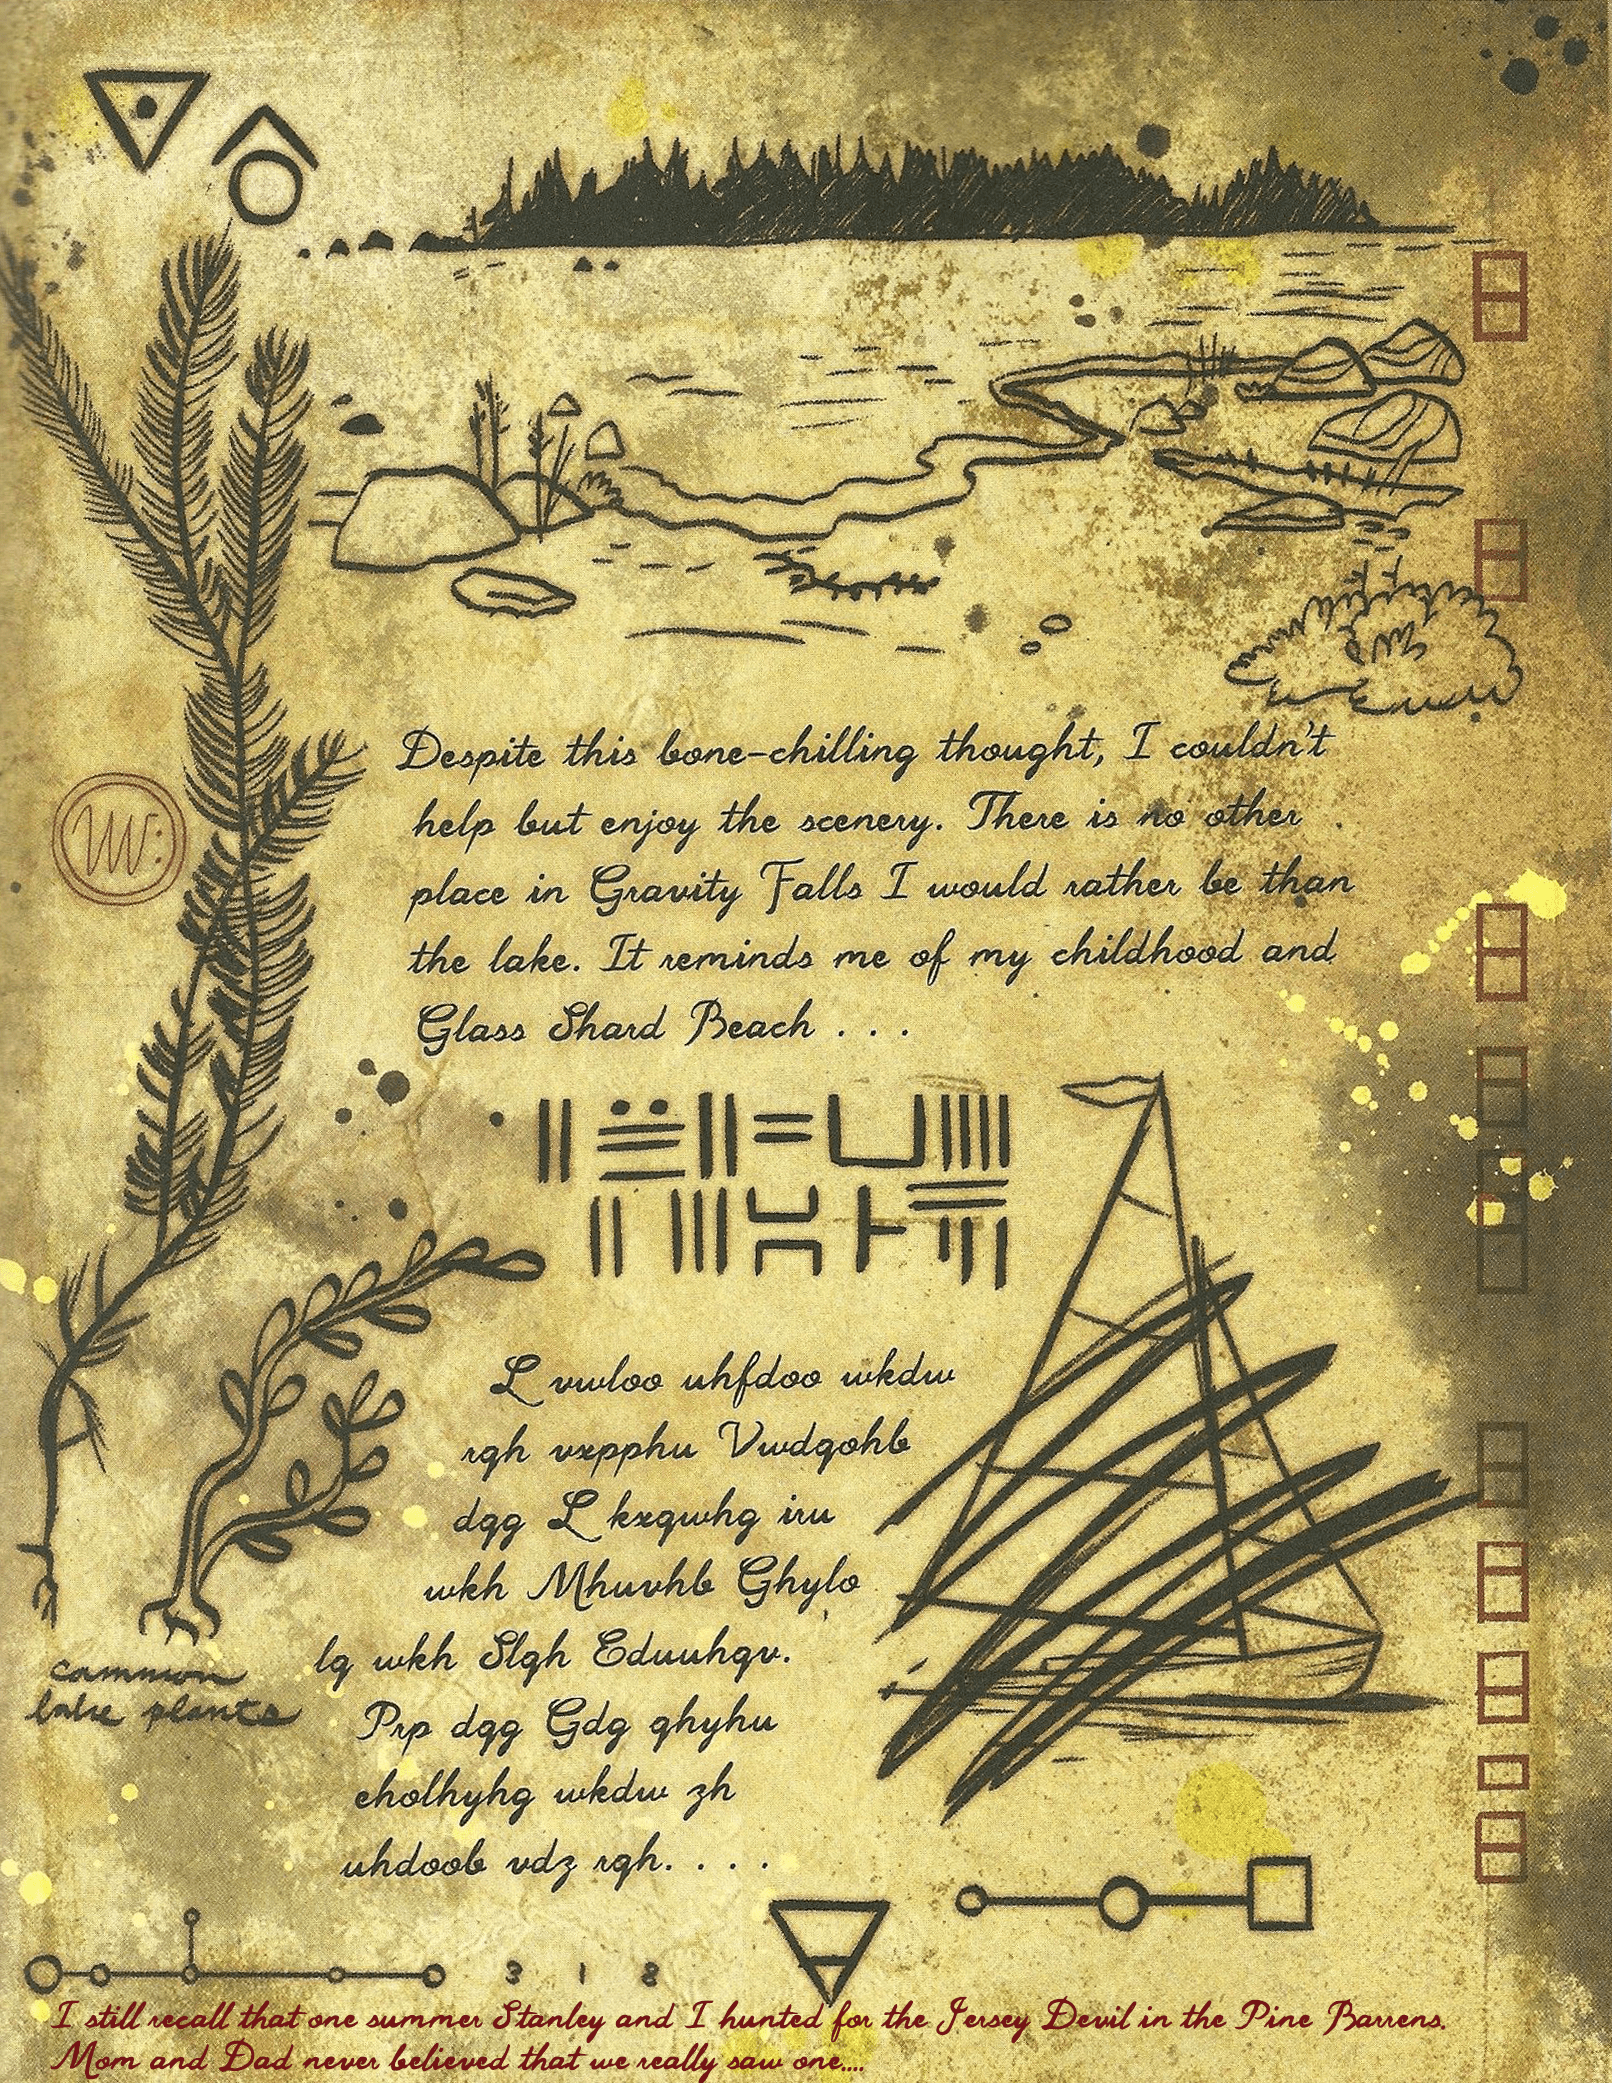 Despite this bone-chilling thought, I couldn't
help but enjoy the scenery. There is no other
place in Gravity Falls I would rather be than
the lake. It reminds me of my childhood and
Glass Shard Beach . . .
L vwloo uhfdoo wkdw
rqh vxpphu Vwdqohb
dqg L kxqwhg iru
wkh Mhuvhb Ghylo
lq wkh Slqh Eduuhqv.
Prp dqg Gdg qhyhu
eholhyhg wkdw zh
uhdoob vdz rqh. . . .
common
lake plants
3 1 8
I still recall that one summer Stanley and I hunted for the Jersey Devil in the Pine Barrens.
Mom and Dad never believed that we really saw one....